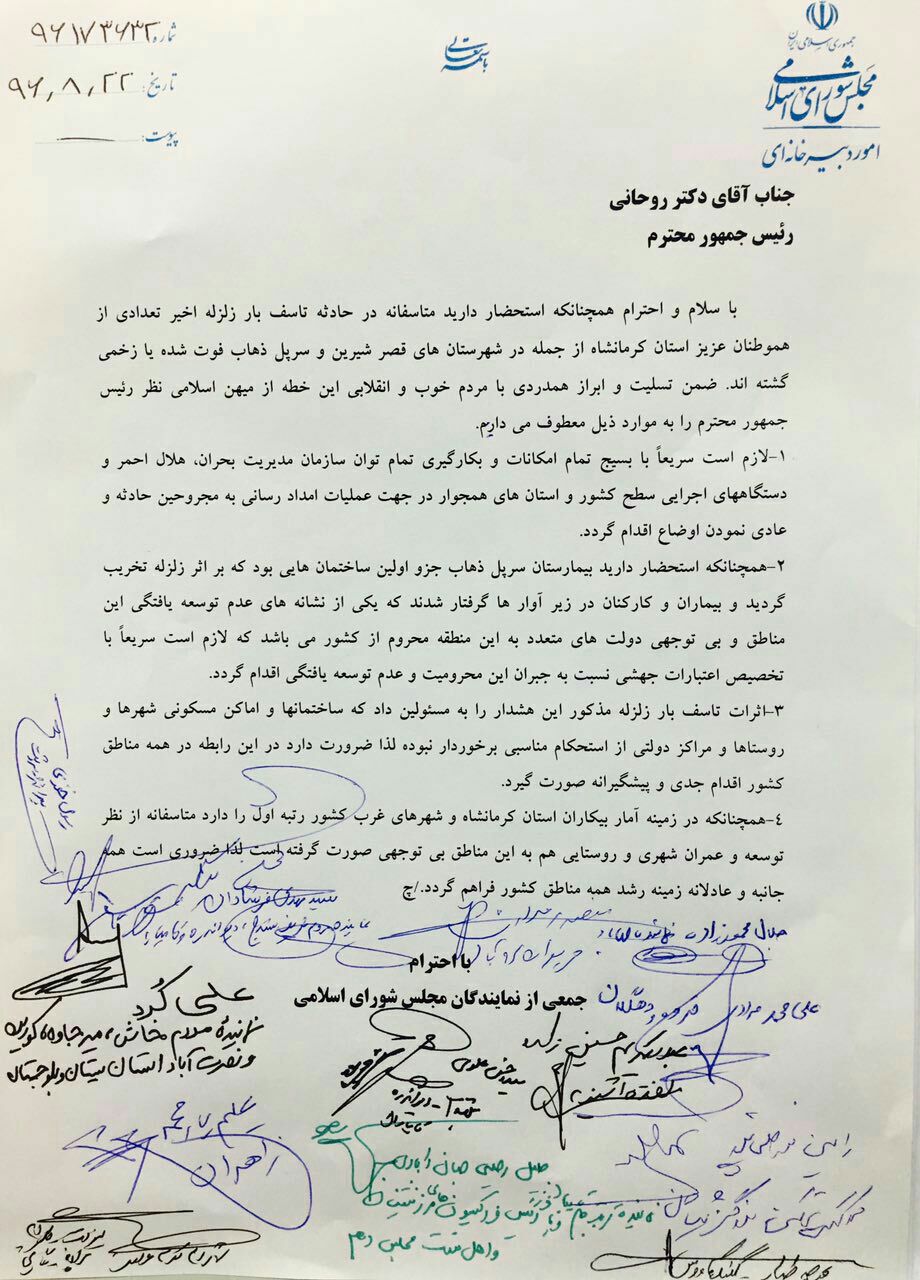 جمهوری اسلامی ایران
مجلس شورای اسلامی
امور دبیرخانه‌ای
باسمه تعالی
شماره: ۹۶۱۷۳۶۳۲
تاریخ: ۹۶,۸,۲۲
پیوست:
جناب آقای دکتر روحانی
رئیس جمهور محترم
با سلام و احترام همچنانکه استحضار دارید متاسفانه در حادثه تاسف بار زلزله اخیر تعدادی از
هموطنان عزیز استان کرمانشاه از جمله در شهرستان های قصر شیرین و سرپل ذهاب فوت شده یا زخمی
گشته اند. ضمن تسلیت و ابراز همدردی با مردم خوب و انقلابی این خطه از میهن اسلامی نظر رئیس
جمهور محترم را به موارد ذیل معطوف می داریم.
۱-لازم است سریعاً با بسیج تمام امکانات و بکارگیری تمام توان سازمان مدیریت بحران، هلال احمر و
دستگاههای اجرایی سطح کشور و استان های همجوار در جهت عملیات امداد رسانی به مجروحین حادثه و
عادی نمودن اوضاع اقدام گردد.
۲-همچنانکه استحضار دارید بیمارستان سرپل ذهاب جزو اولین ساختمان هایی بود که بر اثر زلزله تخریب
گردید و بیماران و کارکنان در زیر آوار ها گرفتار شدند که یکی از نشانه های عدم توسعه یافتگی این
مناطق و بی توجهی دولت های متعدد به این منطقه محروم از کشور می باشد که لازم است سریعاً با
تخصیص اعتبارات جهشی نسبت به جبران این محرومیت و عدم توسعه یافتگی اقدام گردد.
۳-اثرات تاسف بار زلزله مذکور این هشدار را به مسئولین داد که ساختمانها و اماکن مسکونی شهرها و
روستاها و مراکز دولتی از استحکام مناسبی برخوردار نبوده لذا ضرورت دارد در این رابطه در همه مناطق
کشور اقدام جدی و پیشگیرانه صورت گیرد.
۴-همچنانکه در زمینه آمار بیکاران استان کرمانشاه و شهرهای غرب کشور رتبه اول را دارد متاسفانه از نظر
توسعه و عمران شهری و روستایی هم به این مناطق بی توجهی صورت گرفته است لذا ضروری است همه
جانبه و عادلانه زمینه رشد همه مناطق کشور فراهم گردد./چ
سید مهدی فرشادان
جلال محمودزاده
با احترام
جمعی از نمایندگان مجلس شورای اسلامی
علی محمد مرادی
علی کرد
نماینده مردم خاش، میرجاوه، کورین
و نصرت آباد استان سیستان و بلوچستان
عبدالکریم حسین زاده
اهران
و اهل سنت مجلس دهم